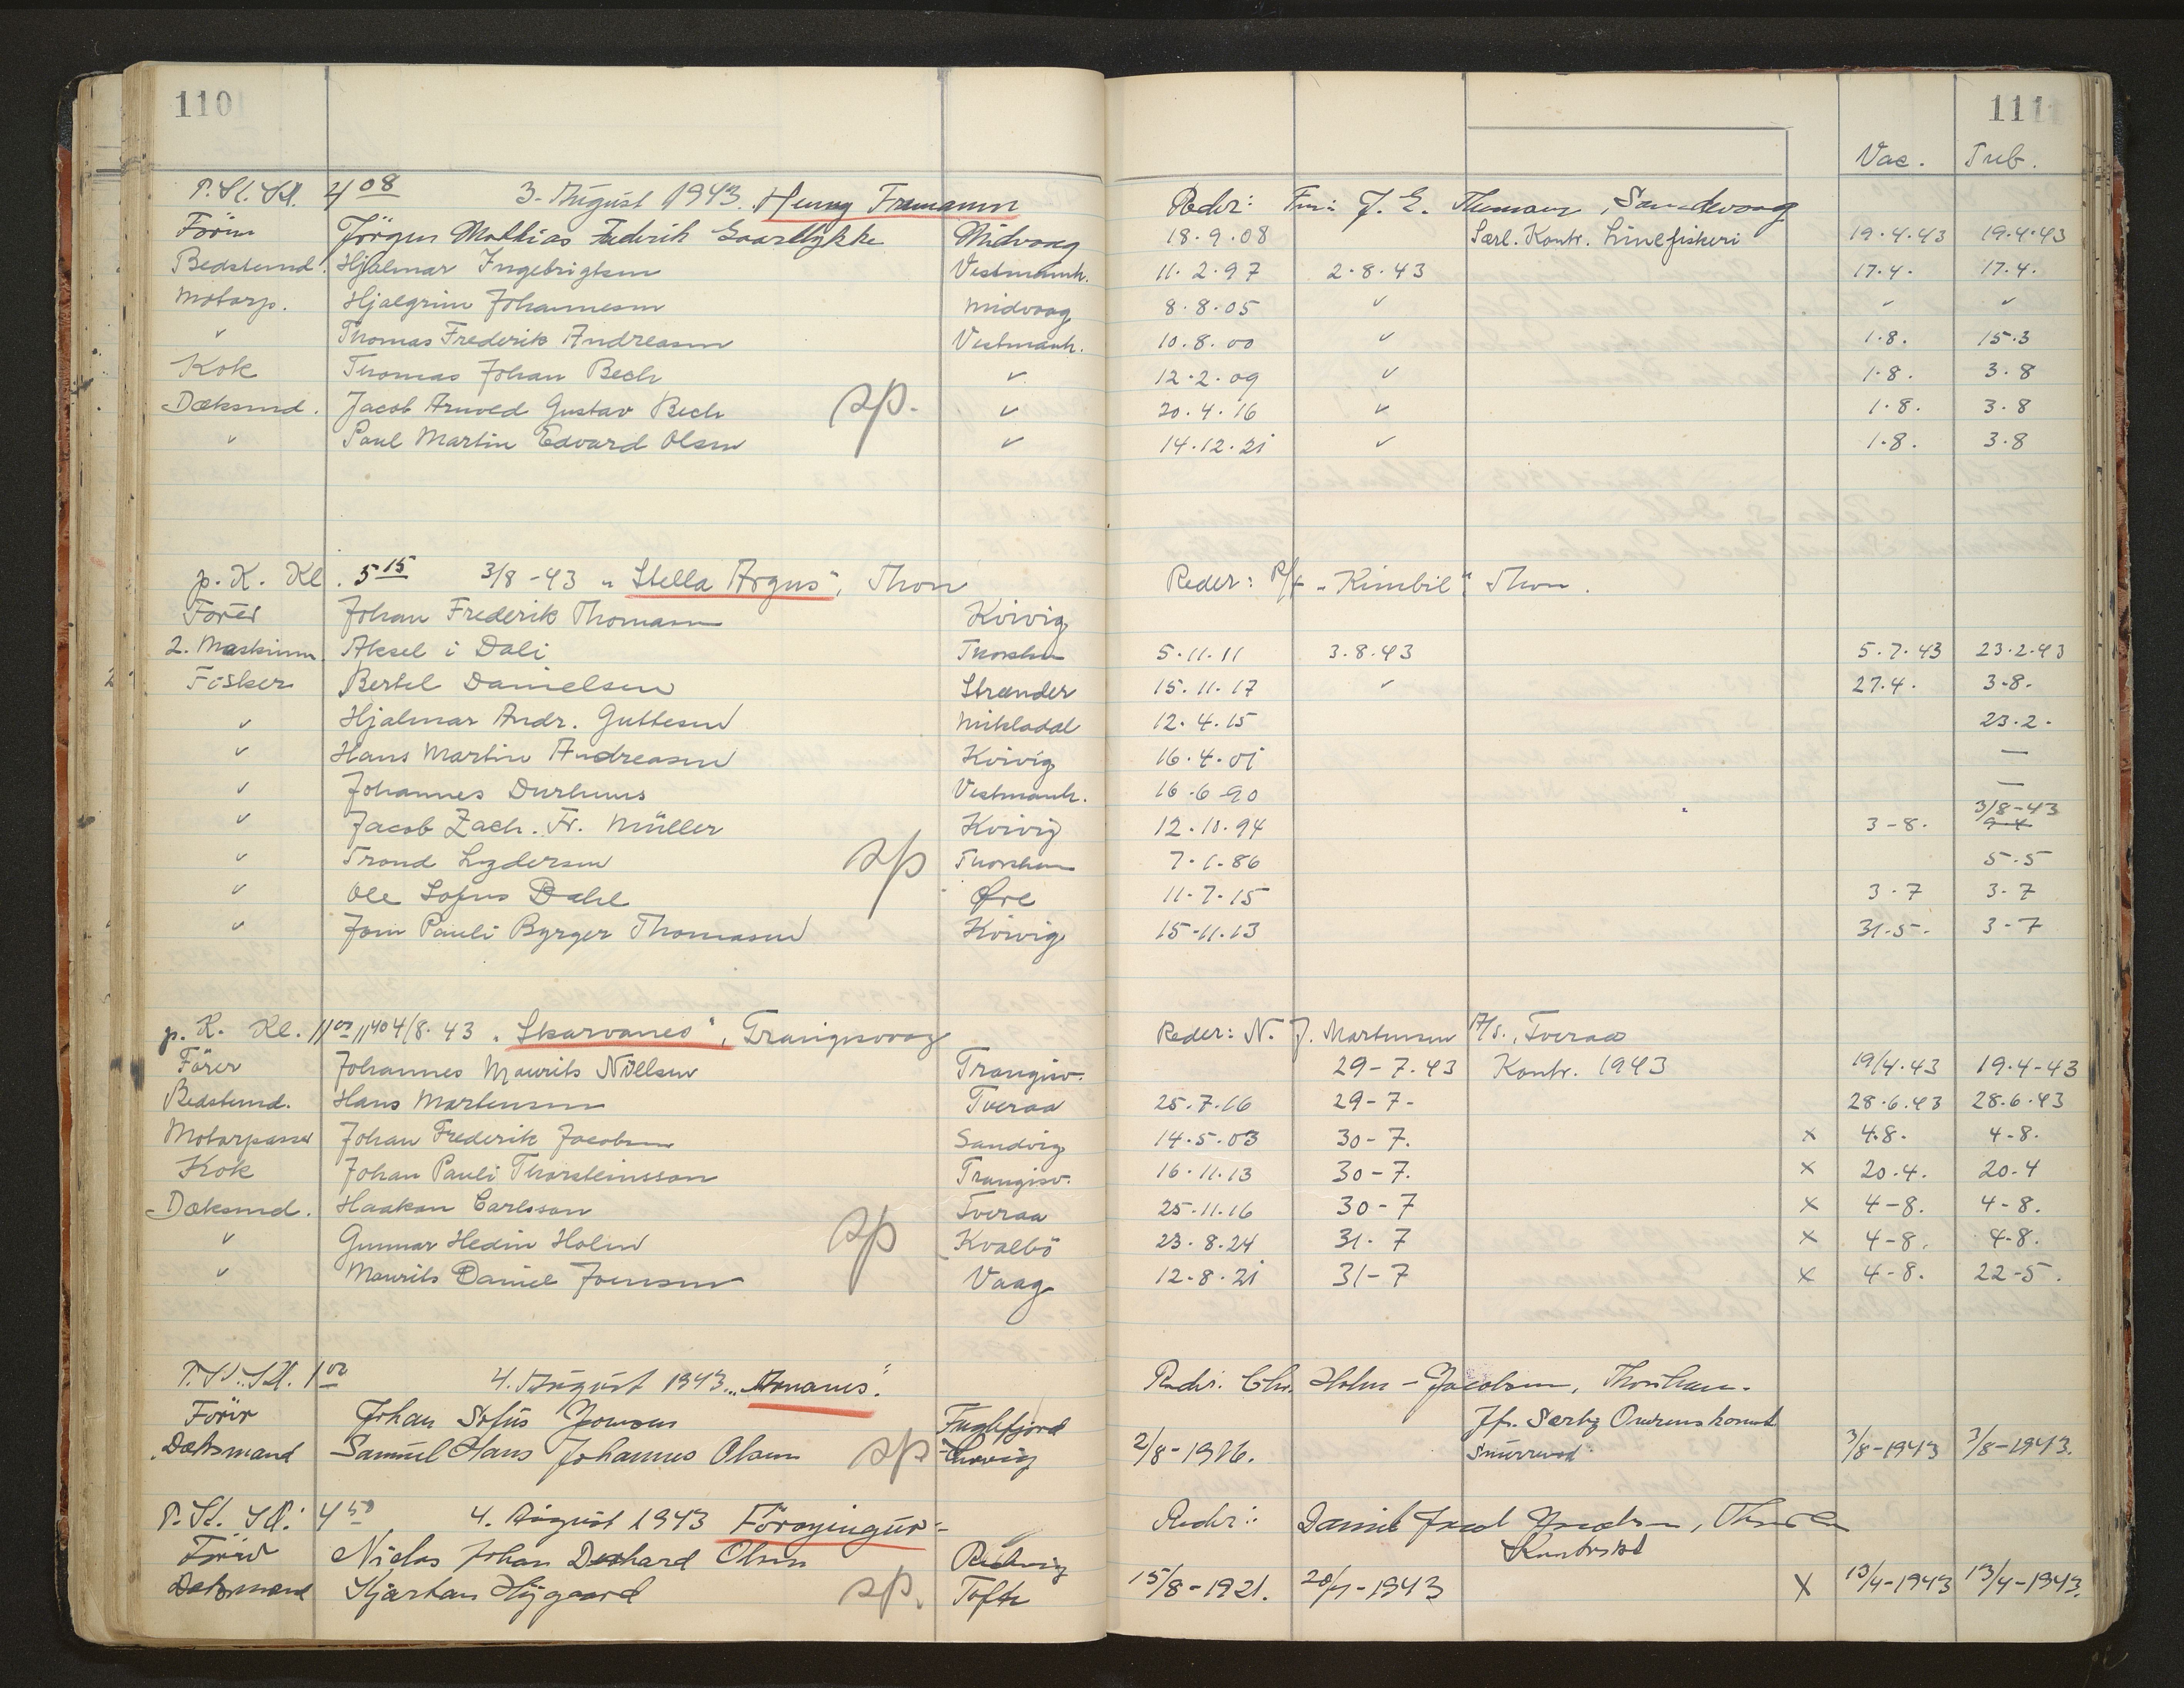 110
111
Vac. Tub.
P. K. Kl. 4 08 3. August 1943. Henry Freemann Reder: Fma J. E. Thomsen, Sandevaag
Förer Jörgen Mathias Frederik Gaardlykke Midvaag 18.9.08 Særl. Kontr. Linefiskeri 19.4.43 19.4.43
Bedstemd. Hjalmar Ingebrigtsen Vestmanh. 11.2.97 2.8.43 17.4. 17.4.
Motorp. Hjalgrim Johannesen Midvaag 8.8.05 ✓ ✓ ✓
✓ Thomas Frederik Andreasen Vestmanh. 10.8.00 ✓ 1.8. 15.3
Kok Thomas Johan Bech ✓ 12.2.09 ✓ 1.8. 3.8
Dæksmd. Jacob Arnved Gustav Bech sp. ✓ 20.4.16 ✓ 1.8. 3.8
✓ Poul Martin Edvard Olsen ✓ 14.12.21 ✓ 1.8. 3.8
p. K. Kl. 5 15 3/8-43 "Stella Argus", Thorn Reder: P/f "Kimbil" Thorn.
Förer Johan Frederik Thomsen Kvivig
2. Maskinm. Aksel i Dali Thorshn 5.11.11 3.8.43 5.7.43 23.2.43
Fisker Bertel Danielsen Strænder 15.11.17 ✓ 27.4. 3-8.
✓ Hjalmar Andr. Guttesen Mikladal 12.4.15 23.2.
✓ Hans Martin Andreasen Kvivig 16.4.01 —
✓ Johannes Durhuus Vestmanh. 16.6-90 —
✓ Jacob Zach. Fr. Müller Kvivig 12.10.94 3-8. 3/8-43
✓ Trond Lydersen sp Thorshn 7.1.86 5.5
✓ Ole Sofus Dahl Øre 11.7.15 3.7 3.7
✓ Joen Pauli Byrger Thomasen Kvivig 15-11.13 31.5-. 3-7
p. K. Kl. 11 00 11 40 4/8.43 "Skarvanes", Trangisvaag Reder: N. J. Mortensen A/S., Tveraa
Förer Johannes Maurits Nielsen Trangisv. 29-7.43 Kontr. 1943 19/4.43 19.4-43
Bedstemd. Hans Mortensen Tveraa 25.7.16 29-7- 28.6.43 28.6.43
Motorpasser Johan Frederik Jacobsen Sandvig 14.5.03 30-7. x 4.8. 4-8.
Kok Johan Pauli Thorsteinsson Trangisv. 16.11.13 30-7. x 20.4. 20.4
Dæksmd. Haakon Carlsson Tveraa 25.11.16 30-7 x 4-8. 4-8.
✓ Gunnar Hedin Holm sp Kvalbö 23.8.24 31.7 x 4-8. 4-8.
✓ Maurits Daniel Joensen Vaag 12.8.21 31-7 x 4-8. 22-5.
P. K. Kl. 1 00 4. August 1943. Reder: Chr. Holm-Jacobsen, Thorshavn.
Förer Johan Sofus Fuglefjord
Dæksmand Samuel Hans Johannes Olsen sp 2/8-1906. 3/8-1943 3/8-1943.
P. K. Kl. 4 50 4. August 1943 Föroyingur Reder: Daniel Jacob
Förer Niclas Johan Olsen
Dæksmand Kjartan Höjgaard sp. Tofte 15/8-1921. 20/7-1943 X 13/4-1943 13/4-1943.